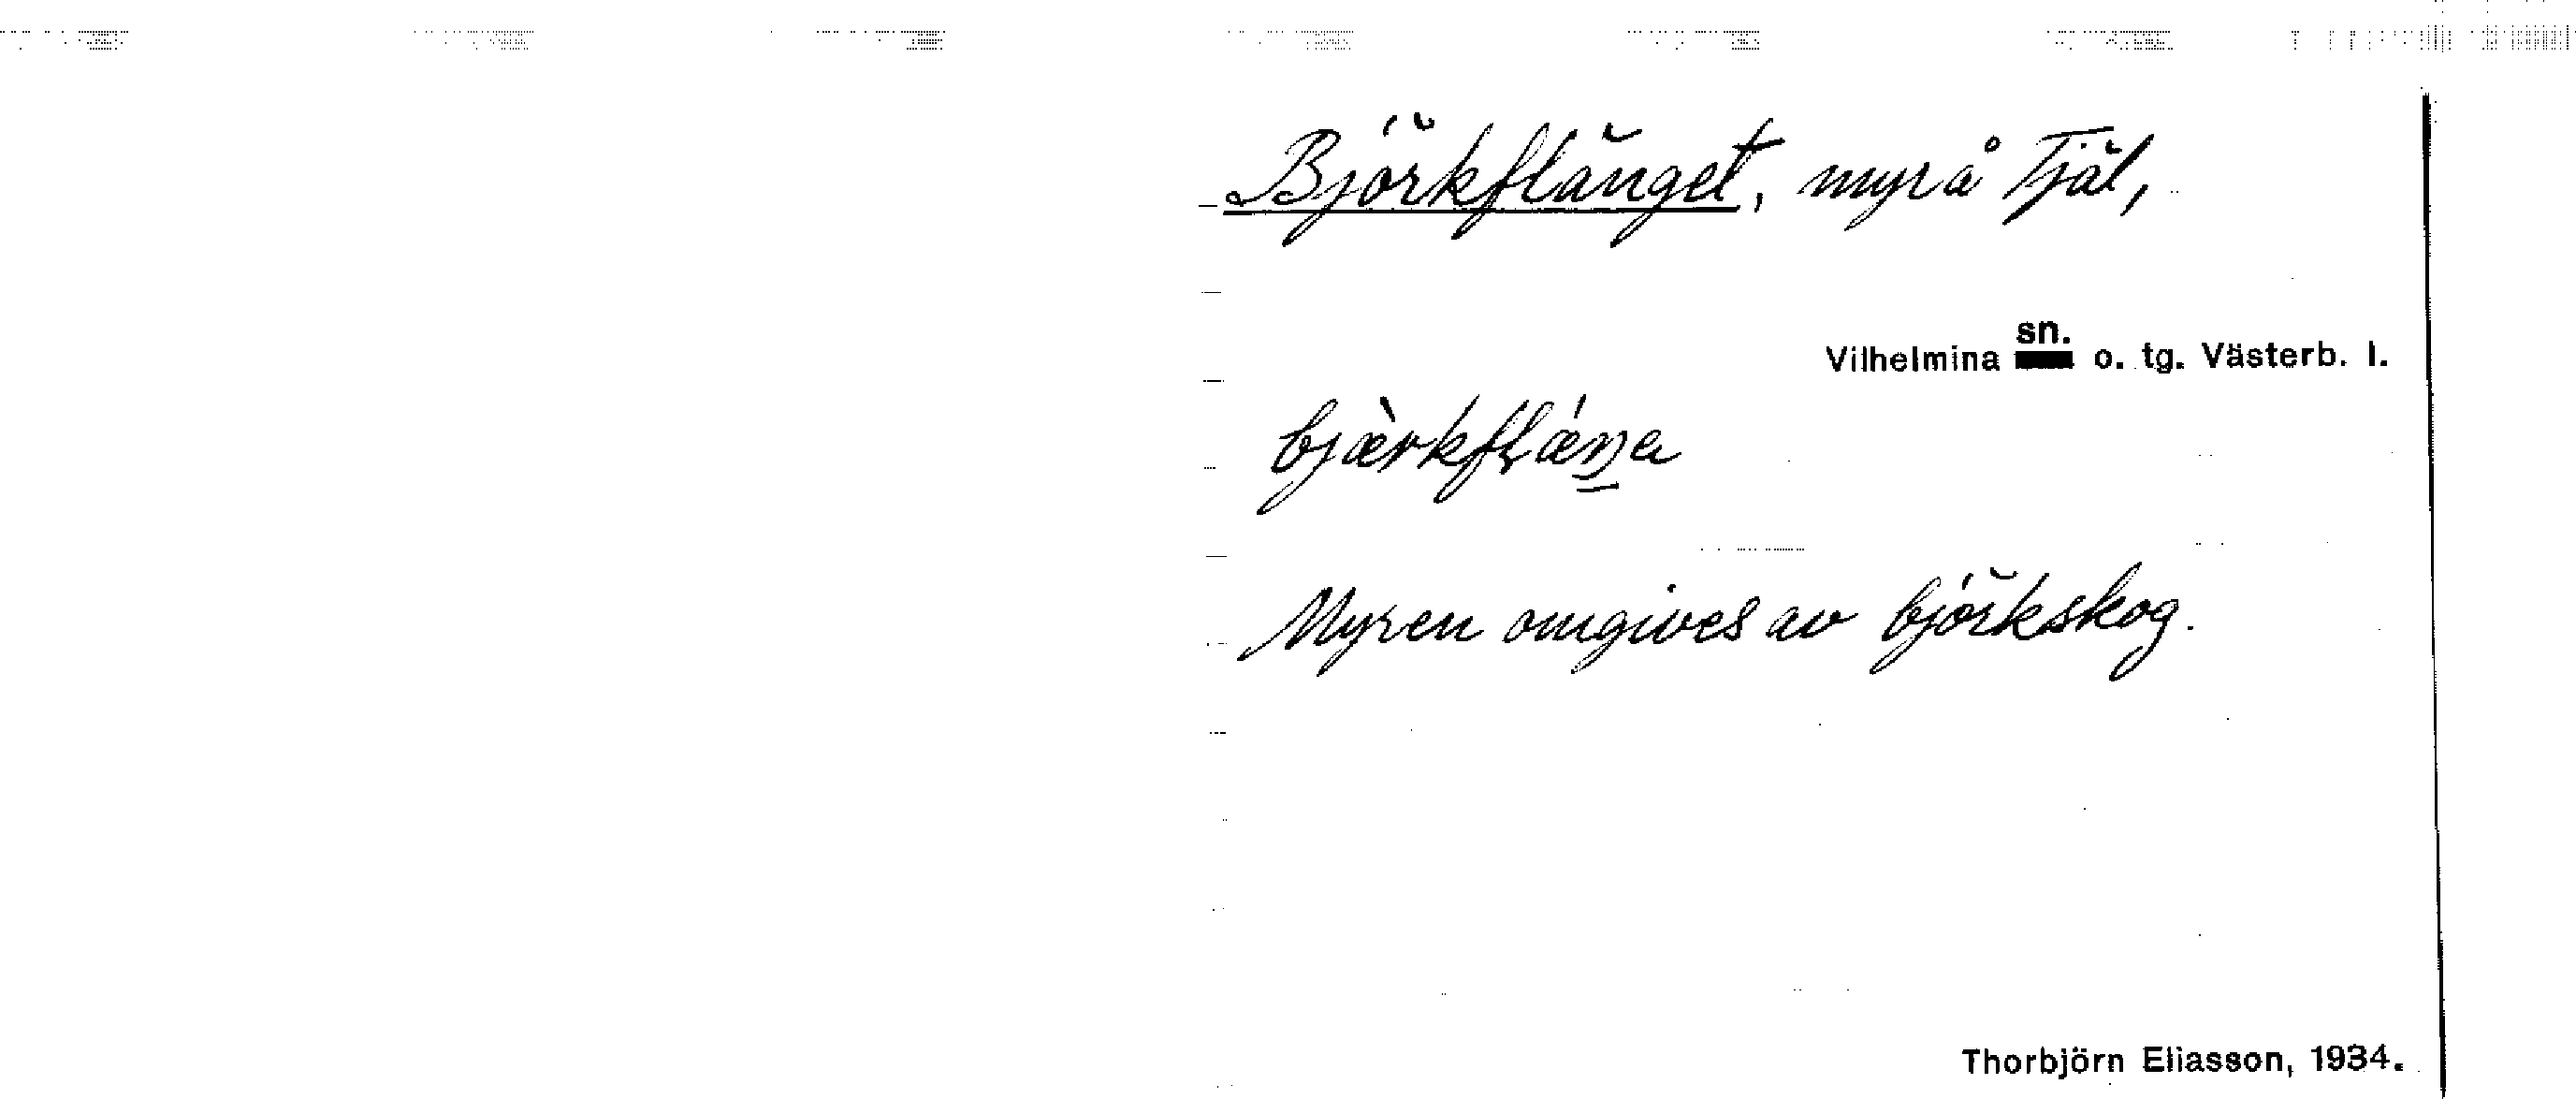 Björkflänget, myr å Tjäl,
Vilhelmina sn. o. tg. Västerb. l.
bjæ̀rkfḷǽŋa
Myren omgives av björkskog.
Thorbjörn Eliasson, 1934.